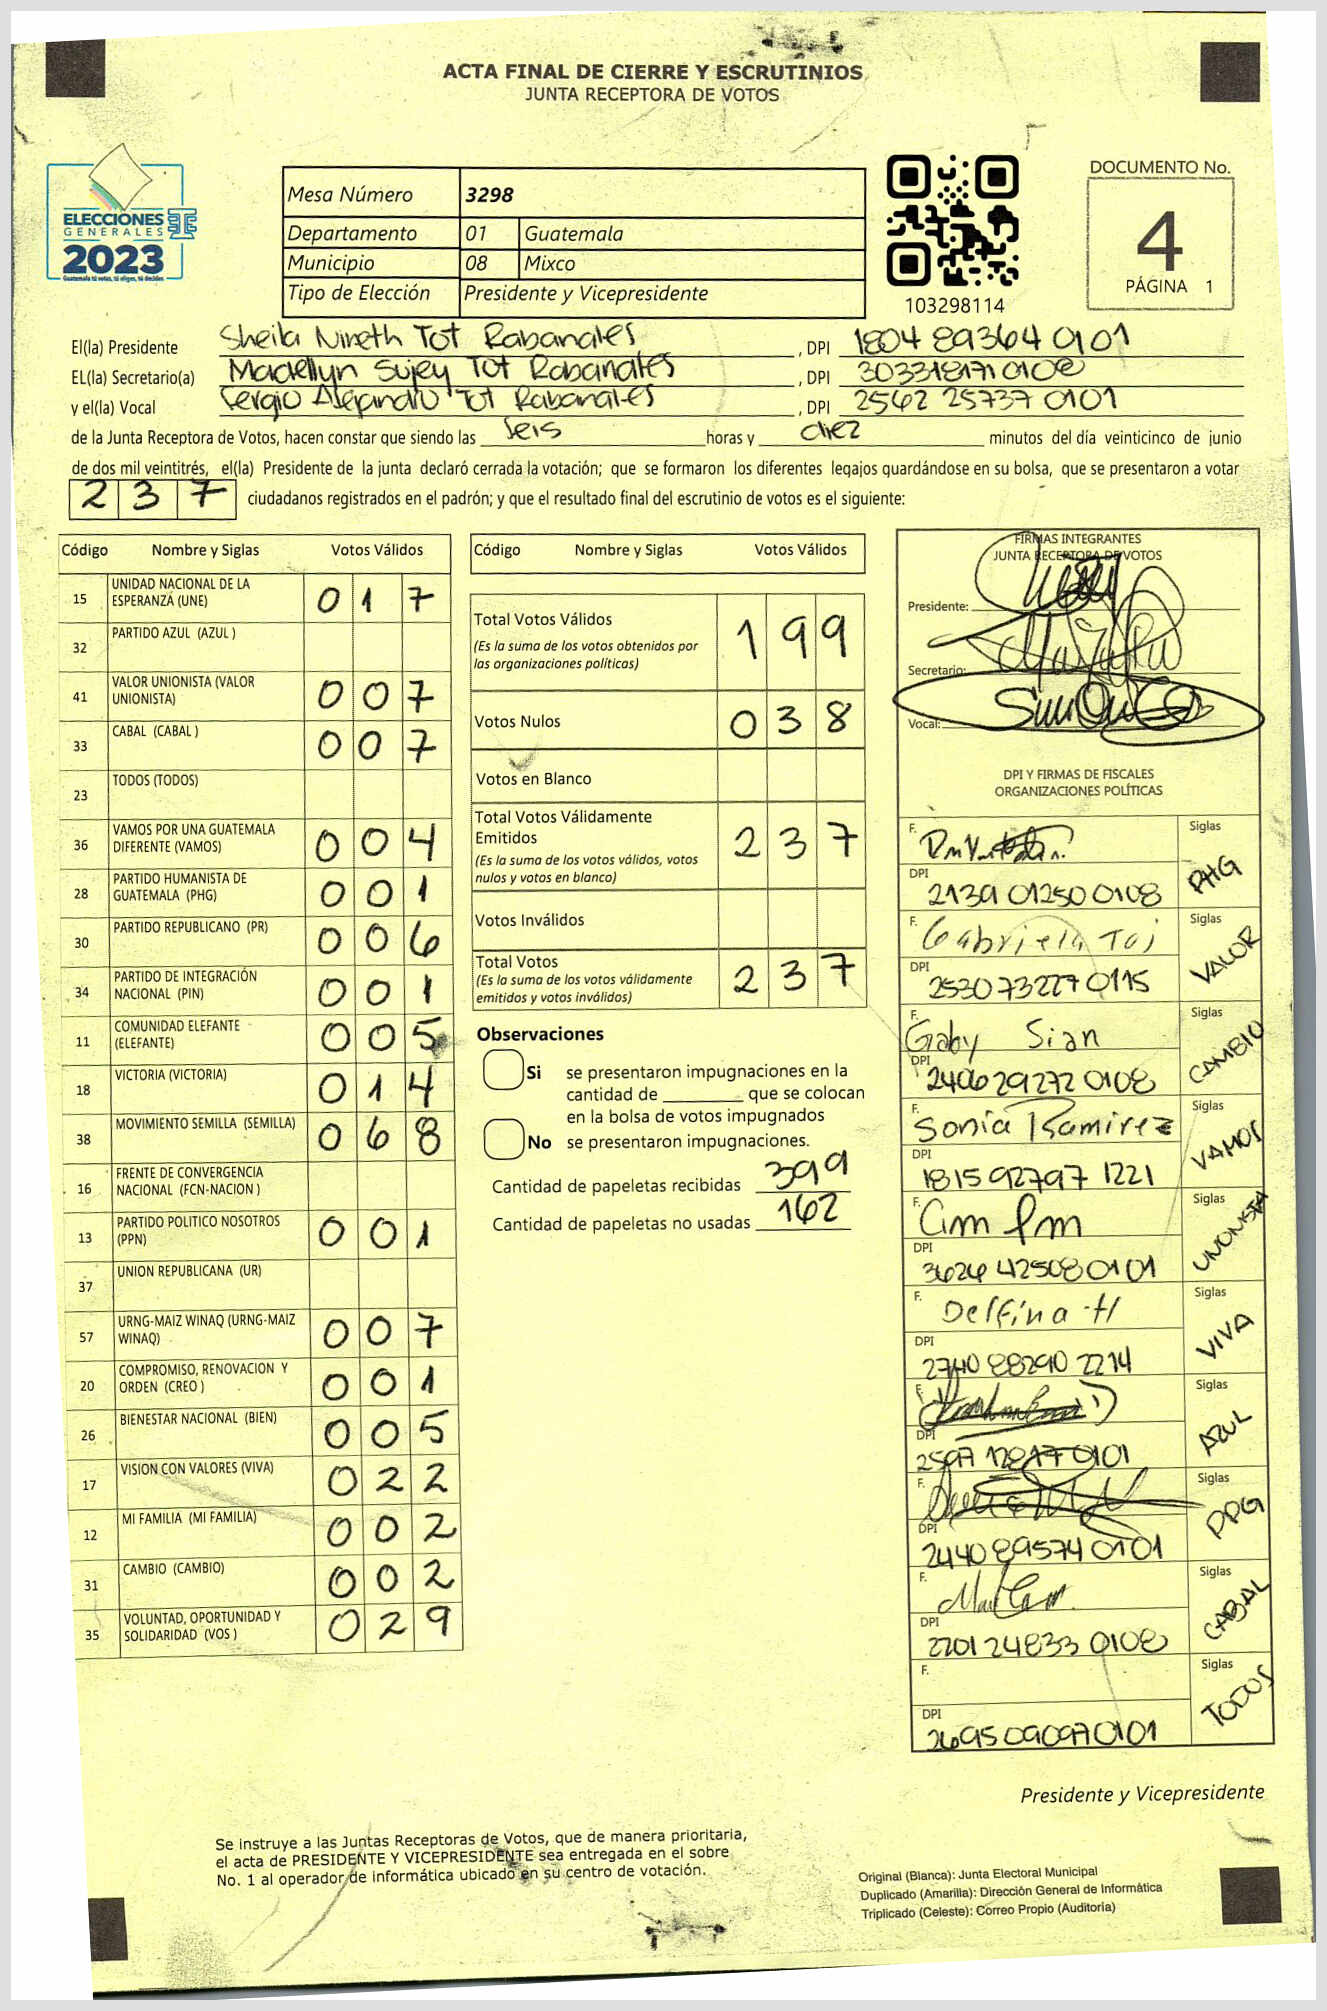 ACTA FINAL DE CIERRE Y ESCRUTINIOS
JUNTA RECEPTORA DE VOTOS
ELECCIONES
GENERALES
2023
Guatemala tú votas, tú eliges, tú decides
Mesa Número 3298
Departamento 01 Guatemala
Municipio 08 Mixco
Tipo de Elección Presidente y Vicepresidente
103298114
DOCUMENTO No.
4
PÁGINA 1
El(la) Presidente Sheila Nineth Tot Rabanales, DPI 1804 89364 0101
EL(la) Secretario(a) Madellyn Sujey Tot Rabanales, DPI 303318171 0108
y el(la) Vocal Sergio Alejandro Tot Rabanales, DPI 2562 25737 0101
de la Junta Receptora de Votos, hacen constar que siendo las seis horas y diez minutos del día veinticinco de junio
de dos mil veintitrés, el(la) Presidente de la junta declaró cerrada la votación; que se formaron los diferentes legajos guardándose en su bolsa, que se presentaron a votar
237 ciudadanos registrados en el padrón; y que el resultado final del escrutinio de votos es el siguiente:
Código Nombre y Siglas Votos Válidos
15 UNIDAD NACIONAL DE LA ESPERANZA (UNE) 017
32 PARTIDO AZUL (AZUL )
41 VALOR UNIONISTA (VALOR UNIONISTA) 007
33 CABAL (CABAL ) 007
23 TODOS (TODOS)
36 VAMOS POR UNA GUATEMALA DIFERENTE (VAMOS) 004
28 PARTIDO HUMANISTA DE GUATEMALA (PHG) 001
30 PARTIDO REPUBLICANO (PR) 006
34 PARTIDO DE INTEGRACIÓN NACIONAL (PIN) 001
11 COMUNIDAD ELEFANTE (ELEFANTE) 005
18 VICTORIA (VICTORIA) 014
38 MOVIMIENTO SEMILLA (SEMILLA) 068
16 FRENTE DE CONVERGENCIA NACIONAL (FCN-NACION )
13 PARTIDO POLITICO NOSOTROS (PPN) 001
37 UNION REPUBLICANA (UR)
57 URNG-MAIZ WINAQ (URNG-MAIZ WINAQ) 007
20 COMPROMISO, RENOVACION Y ORDEN (CREO ) 001
26 BIENESTAR NACIONAL (BIEN) 005
17 VISION CON VALORES (VIVA) 022
12 MI FAMILIA (MI FAMILIA) 002
31 CAMBIO (CAMBIO) 002
35 VOLUNTAD, OPORTUNIDAD Y SOLIDARIDAD (VOS ) 029
Código Nombre y Siglas Votos Válidos
Total Votos Válidos 199
(Es la suma de los votos obtenidos por
las organizaciones políticas)
Votos Nulos 038
Votos en Blanco
Total Votos Válidamente
Emitidos 237
(Es la suma de los votos válidos, votos
nulos y votos en blanco)
Votos Inválidos
Total Votos 237
(Es la suma de los votos válidamente
emitidos y votos inválidos)
Observaciones
Si se presentaron impugnaciones en la
cantidad de que se colocan
en la bolsa de votos impugnados
No se presentaron impugnaciones.
Cantidad de papeletas recibidas 399
Cantidad de papeletas no usadas 162
FIRMAS INTEGRANTES
JUNTA RECEPTORA DE VOTOS
Presidente:
Secretario:
Vocal:
DPI Y FIRMAS DE FISCALES
ORGANIZACIONES POLÍTICAS
F. Siglas PHG
DPI 2139 01250 0108
F. Gabriela Toj Siglas VALOR
DPI 2530 73227 0115
F. Gaby Sian Siglas CAMBIO
DPI 2406 29272 0108
F. Sonia Ramirez Siglas VAMOS
DPI 1815 92797 1221
F. Siglas UNIONISTA
DPI 3626 42508 0101
F. Delfina H Siglas VIVA
DPI 2740 88290 2214
F. Siglas AZUL
DPI 2597 12817 0101
F. Siglas PPG
DPI 2440 89574 0101
F. Siglas CABAL
DPI 2201 24833 0108
F. Siglas TODOS
DPI 2695 09097 0101
Presidente y Vicepresidente
Se instruye a las Juntas Receptoras de Votos, que de manera prioritaria,
el acta de PRESIDENTE Y VICEPRESIDENTE sea entregada en el sobre
No. 1 al operador de informática ubicado en su centro de votación.
Original (Blanca): Junta Electoral Municipal
Duplicado (Amarilla): Dirección General de Informática
Triplicado (Celeste): Correo Propio (Auditoria)